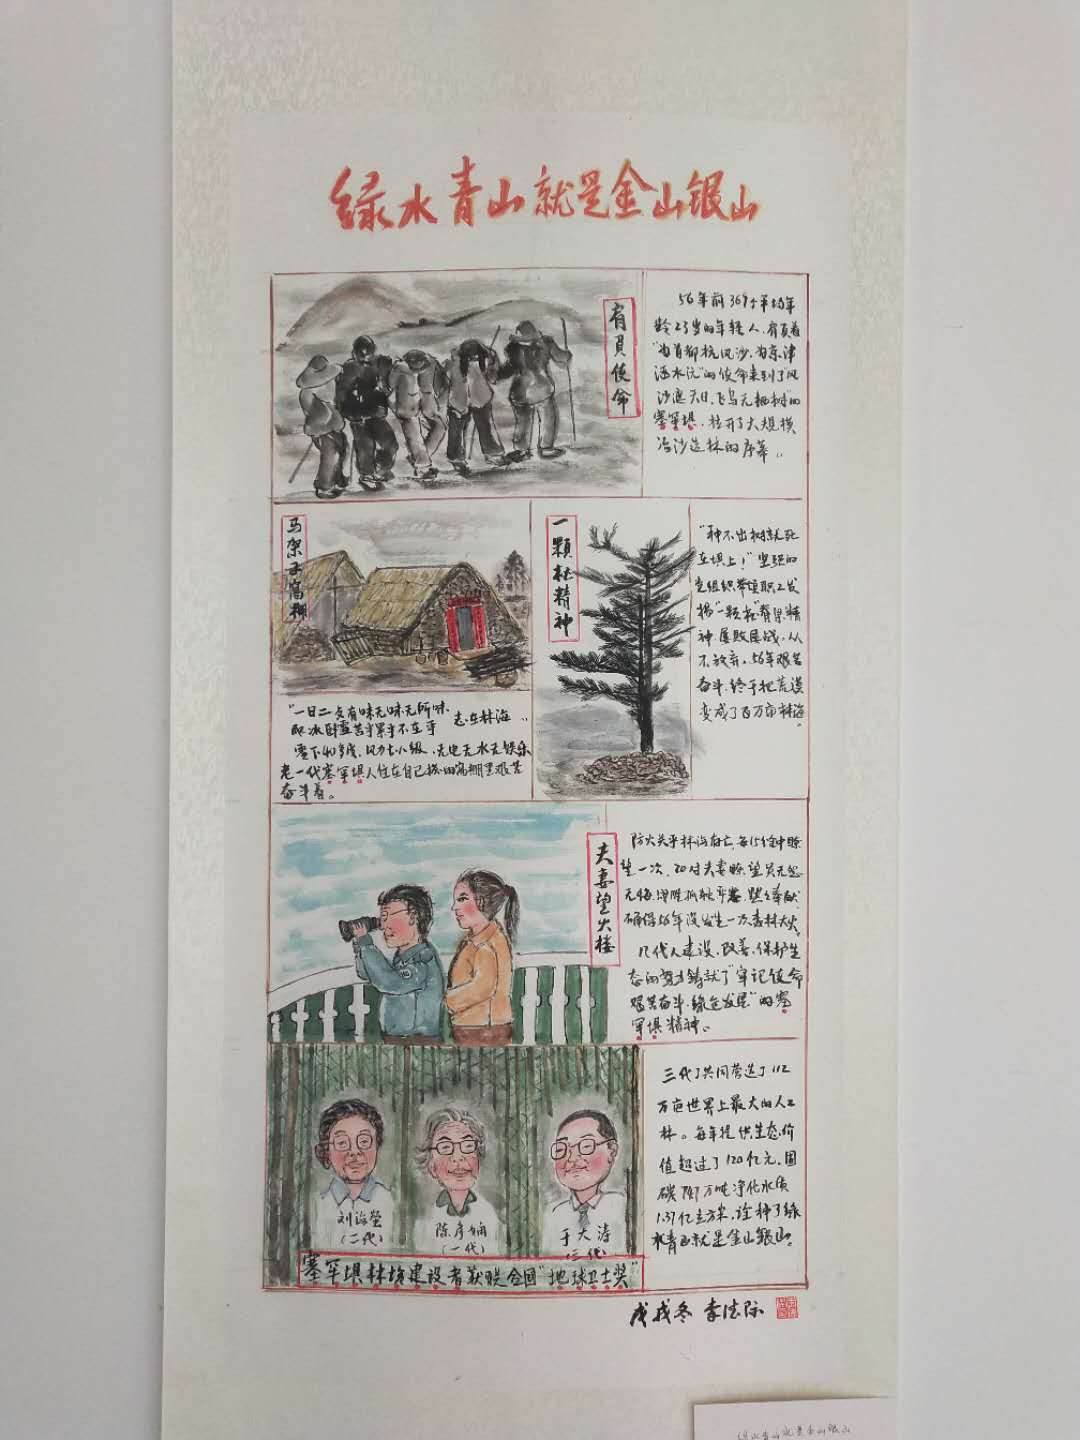 绿水青山就是金山银山
肩负使命
56年前369个平均年
龄23岁的年轻人，肩负着
"为首都抗风沙、为京津
涵水沅"的使命来到了风
沙遮天日，飞鸟无栖树"的
塞罕坝，拉开了大规模
治沙造林的序幕。
马架子窝棚
"一日二

有味无味无所味
志在林海"
卧冰卧雪苦乎累乎不在乎
零下40多度，风力七八级，无电无水无娱乐
老一代塞罕坝人住在自己搭的窝棚里艰苦
奋斗着。
一颗松精神
"种不出树就死
在坝上！"坚强的
党组织带领职工发
扬"一颗松"精
神屡败屡战，从
不放弃。56年艰苦
奋斗，终于把荒漠
变成了百万亩林海。
夫妻望火楼
防火关乎林海存亡，每15分钟瞭
望一次，20对夫妻瞭望员无怨
无悔，
确保56年没发生一次森林大火。
几代人建设、改善、保护生
态的努力铸就了"牢记使命
艰苦奋斗、绿色发展"的塞
罕坝精神。
三代人共同营造了112
万亩世界上最大的人工
林。每年提供生态价
值超过了120亿元，固
碳747万吨净化水质
1.37亿立方米，诠释了绿
水青山就是金山银山。
刘海莹
（二代）
陈彦娴
（一代）
于大涛
（三代）
塞罕坝林场建设者获联合国"地球卫士奖"
戊戌冬 李德际
绿水青山就是金山银山